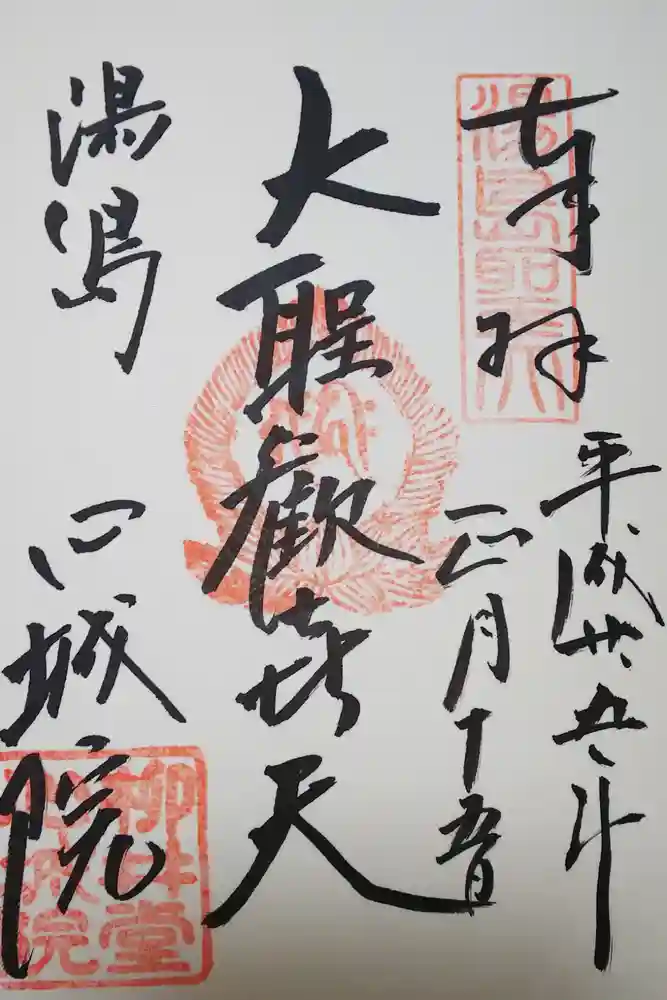 奉拝
平成廿五年
正月十五日
大聖歓喜天
湯島
心城院
柳井堂
心城院